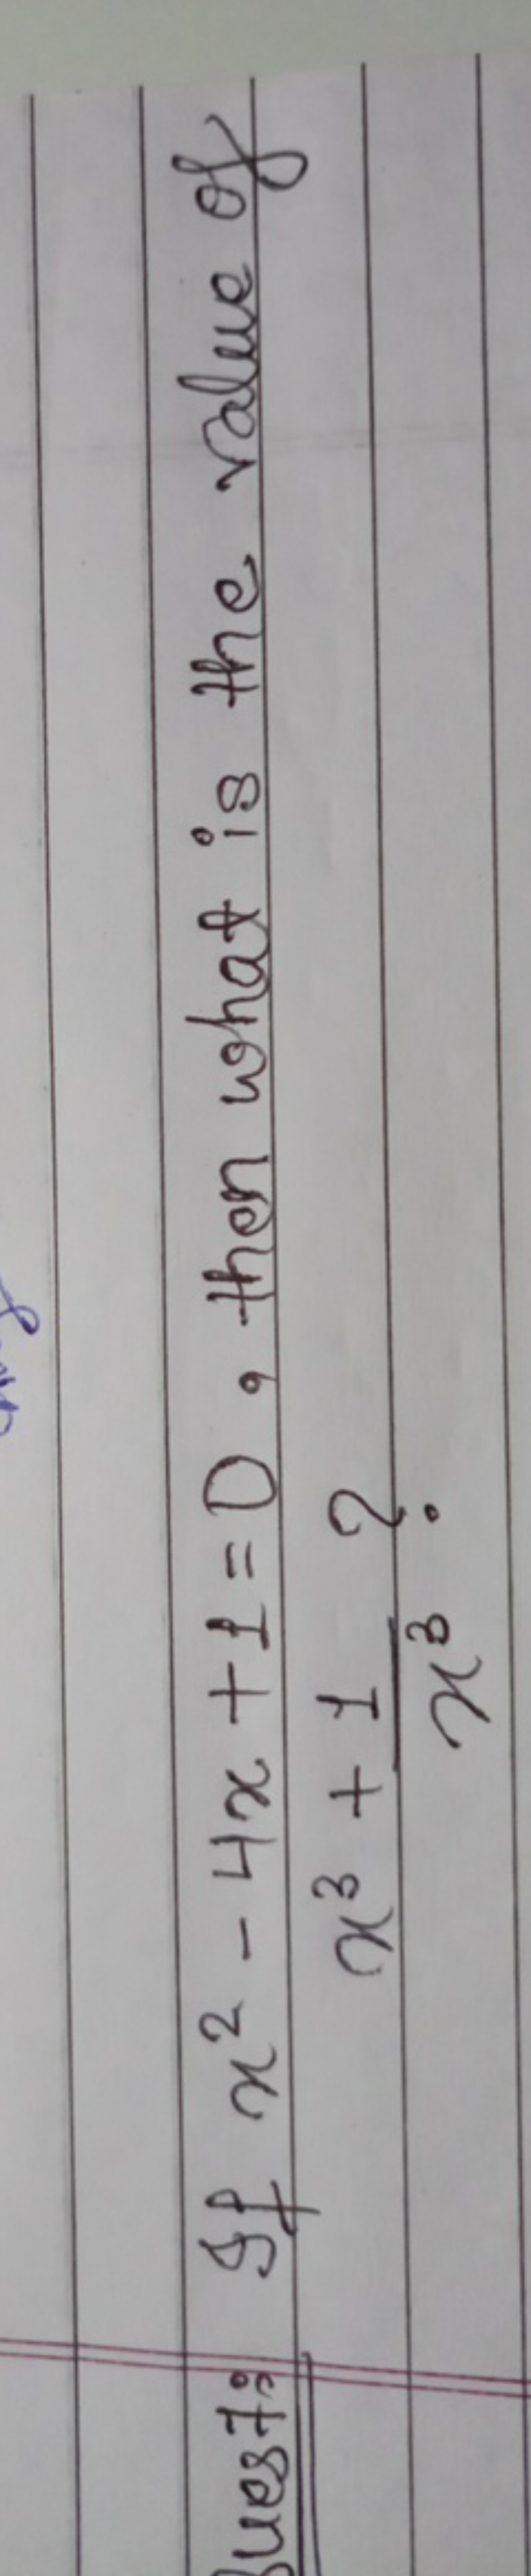 Quest: If x² - 4x + 1 = 0, then what is the value of
x³ + 1/x³ ?